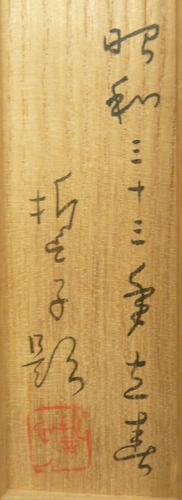 昭和三十三年立春
哲子題